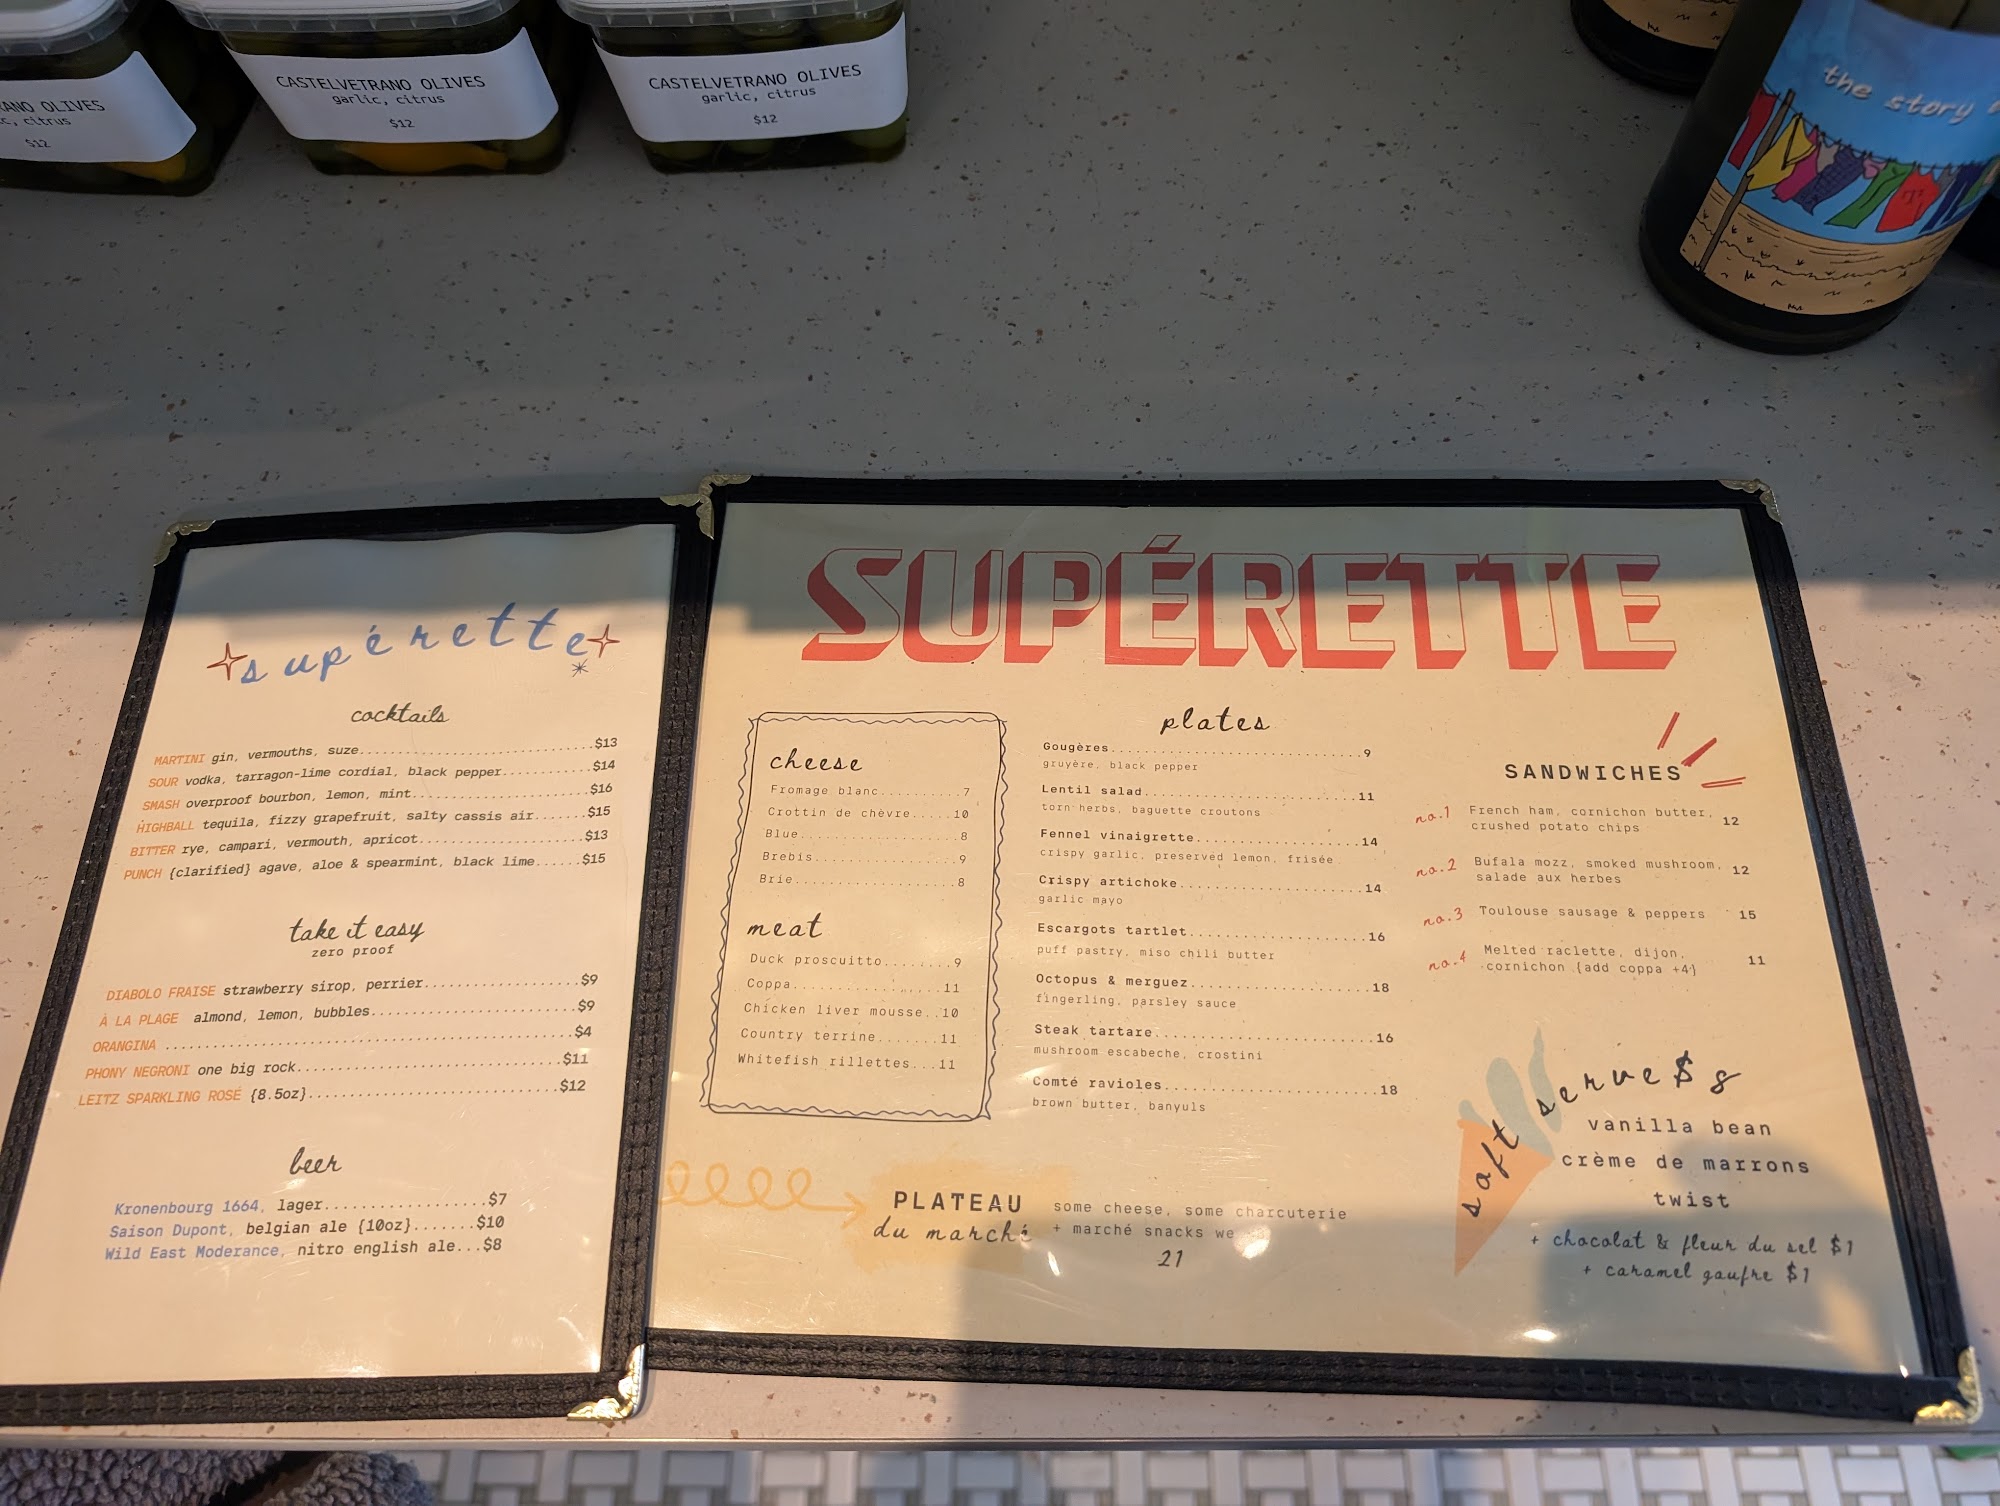 RANO OLIVES
c, citrus
$12
CASTELVETRANO OLIVES
garlic, citrus
$12
CASTELVETRANO OLIVES
garlic, citrus
$12
the story
supérette
cocktails
MARTINI gin, vermouths, suze..............................$13
SOUR vodka, tarragon-lime cordial, black pepper...........$14
SMASH overproof bourbon, lemon, mint......................$16
HIGHBALL tequila, fizzy grapefruit, salty cassis air.......$15
BITTER rye, campari, vermouth, apricot....................$13
PUNCH {clarified} agave, aloe & spearmint, black lime......$15
take it easy
zero proof
DIABOLO FRAISE strawberry sirop, perrier..................$9
À LA PLAGE almond, lemon, bubbles.........................$9
ORANGINA .................................................$4
PHONY NEGRONI one big rock................................$11
LEITZ SPARKLING ROSÉ {8.5oz}..............................$12
beer
Kronenbourg 1664, lager...................$7
Saison Dupont, belgian ale {10oz].......$10
Wild East Moderance, nitro english ale...$8
SUPÉRETTE
cheese
Fromage blanc...........7
Crottin de chèvre.....10
Blue....................8
Brebis..................9
Brie....................8
meat
Duck proscuitto........9
Coppa..................11
Chicken liver mousse..10
Country terrine.......11
Whitefish rillettes...11
plates
Gougères..............................9
gruyère, black pepper
Lentil salad..........................11
torn herbs, baguette croutons
Fennel vinaigrette....................14
crispy garlic, preserved lemon, frisée
Crispy artichoke......................14
garlic mayo
Escargots tartlet.....................16
puff pastry, miso chili butter
Octopus & merguez.....................18
fingerling, parsley sauce
Steak tartare.........................16
mushroom escabeche, crostini
Comté ravioles........................18
brown butter, banyuls
SANDWICHES
no.1 French ham, cornichon butter, 12
crushed potato chips
no.2 Bufala mozz, smoked mushroom, 12
salade aux herbes
no.3 Toulouse sausage & peppers 15
no.4 Melted raclette, dijon, 11
cornichon {add coppa +4}
PLATEAU
du marché
some cheese, some charcuterie
+ marché snacks we
21
soft serve $8
vanilla bean
crème de marrons
twist
+ chocolat & fleur du sel $1
+ caramel gaufre $1